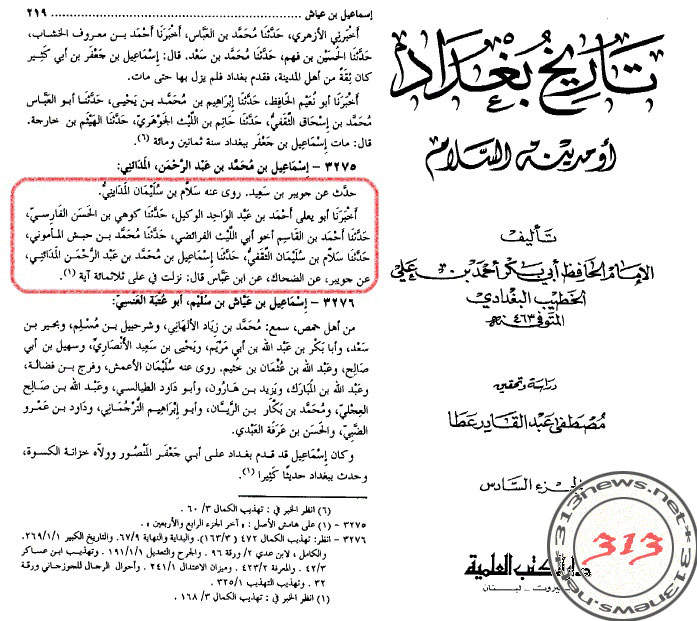 تاريخ بغداد
أو مدينة السلام
تأليف
الإمام الحافظ أبي بكر أحمد بن علي
الخطيب البغدادي
المتوفى ٤٦٣ هـ
دراسة وتحقيق
مصطفى عبد القادر عطا
الجزء السادس
دار الكتب العلمية
بيروت - لبنان
313news.net*313news.net*
313
إسماعيل بن عياش ٢١٩
أخبرني الأزهري، حدّثنا مُحمَّد بن العباس، أخبرنا أحمد بن معروف الخشاب،
حَدّثنا الحُسَيْن بن فهم، حدّثنا مُحمَّد بن سَعْد. قال: إسْماعيل بن جَعْفَر بن أبي كثير
كان ثِقةً من أهل المدينة، فقدم بغداد فلم يزل بها حتى مات.
أخْبَرنا أبو نُعَيْم الحافِظ، حدّثنا إبْراهيم بن مُحَمَّد بن يَحْيى، حدّثنا أبو العبَّاس
مُحمَّد بن إسْحاق الثَّقفيُّ، حدّثنا حَاتِم بن اللَّيْث الجَوْهَريّ، حدّثنا الهَيْثم بن خارجة.
قال: مات إسْمَاعيل بن جَعْفَر ببغداد سنة ثمانين ومائة (٦).
٣٢٧٥ – إسْمَاعيل بن مُحمَّد بن عَبْد الرَّحْمَن، المَدَائنيّ:
حدَّث عن جويبر بن سَعِيد. روى عنه سَلاَّم بن سُلَيْمان المَدَاينيُّ.
أخْبَرنا أبو يعلى أَحْمَد بن عَبْد الواحِد الوكيل، حدّثنا كوهي بن الحَسَن الفَارِسيّ،
حدّثنا أحْمَد بن القَاسِم أخو أبي اللَّيْث الفرائضي، حدّثنا مُحمَّد بن حبش المأموني،
حدّثنا سَلاَّم بن سُلَيْمان الثَّقفيُّ، حدّثنا إسْماعيل بن مُحمَّد بن عَبْد الرَّحْمَن المَدَائنيّ،
عن جويبر، عن الضحاك، عن ابن عَبَّاس قال: نزلت في على ثلاثمائة آية (١).
٣٢٧٦ – إسْمَاعيل بن عَيَّاش بن سُليْم، أبو عُتْبة العَنْسِيّ:
من أهل حمص، سمع: مُحمَّد بن زياد الألْهَاني، وشرحبيل بن مُسْلِم، وبحير بن
سَعْد، وأبا بَكْر بن عَبْد الله بن أبي مَرْيَم، ويَحْيى بن سَعِيد الأنْصَاريَّ، وسهيل بن أبي
صالح، وعَبْد الله بن عُثْمان بن خثيم. روى عنه سُلَيْمان الأعمش، وفرج بن فضالة،
وعَبْد الله بن المُبَارك، ويَزيد بن هَارُون، وأبو داود الطيالسي، وعَبْد الله بن صَالِح
العِجْليّ، ومُحمَّد بن بَكَّار بن الرَّيَّان، وأبو إبْرَاهيم التَّرْجُماني، وداود بن عَمْرو
الضبّيّ، والحَسَن بن عَرَفة العَبْدي.
وكان إسْمَاعيل قد قدم بغداد على أبي جَعْفَر المَنْصُور وولاه خزانة الكسوة،
وحدث ببغداد حديثًا كَثِيرًا (١).
(٦) انظر الخبر في : تهذيب الكمال ٣/ ٦٠ .
٣٢٧٥ – (١) على هامش الأصل : « آخر الجزء الرابع والأربعين » .
٣٢٧٦ – انظر: تهذيب الكمال ٤٧٢ (٣/ ١٦٣). والبداية والنهاية ٦٧/٩. والتاريخ الكبير ٣٦٩/١/١.
والكامل، لابن عدي ٢/ ورقة ٩٦ . والجرح والتعديل ١٩١/١/١ . وتهذيب ابن عساكر
٤٢/٣ . والمعرفة ٤٢٣/٢ . وميزان الاعتدال ٢٤١/١ . وأحوال الرجال للجوزجاني ورقة
٣٢ . وتهذيب التهذيب ٣٢٥/١ .
(١) انظر الخبر في : تهذيب الكمال ٣/ ١٦٨ .